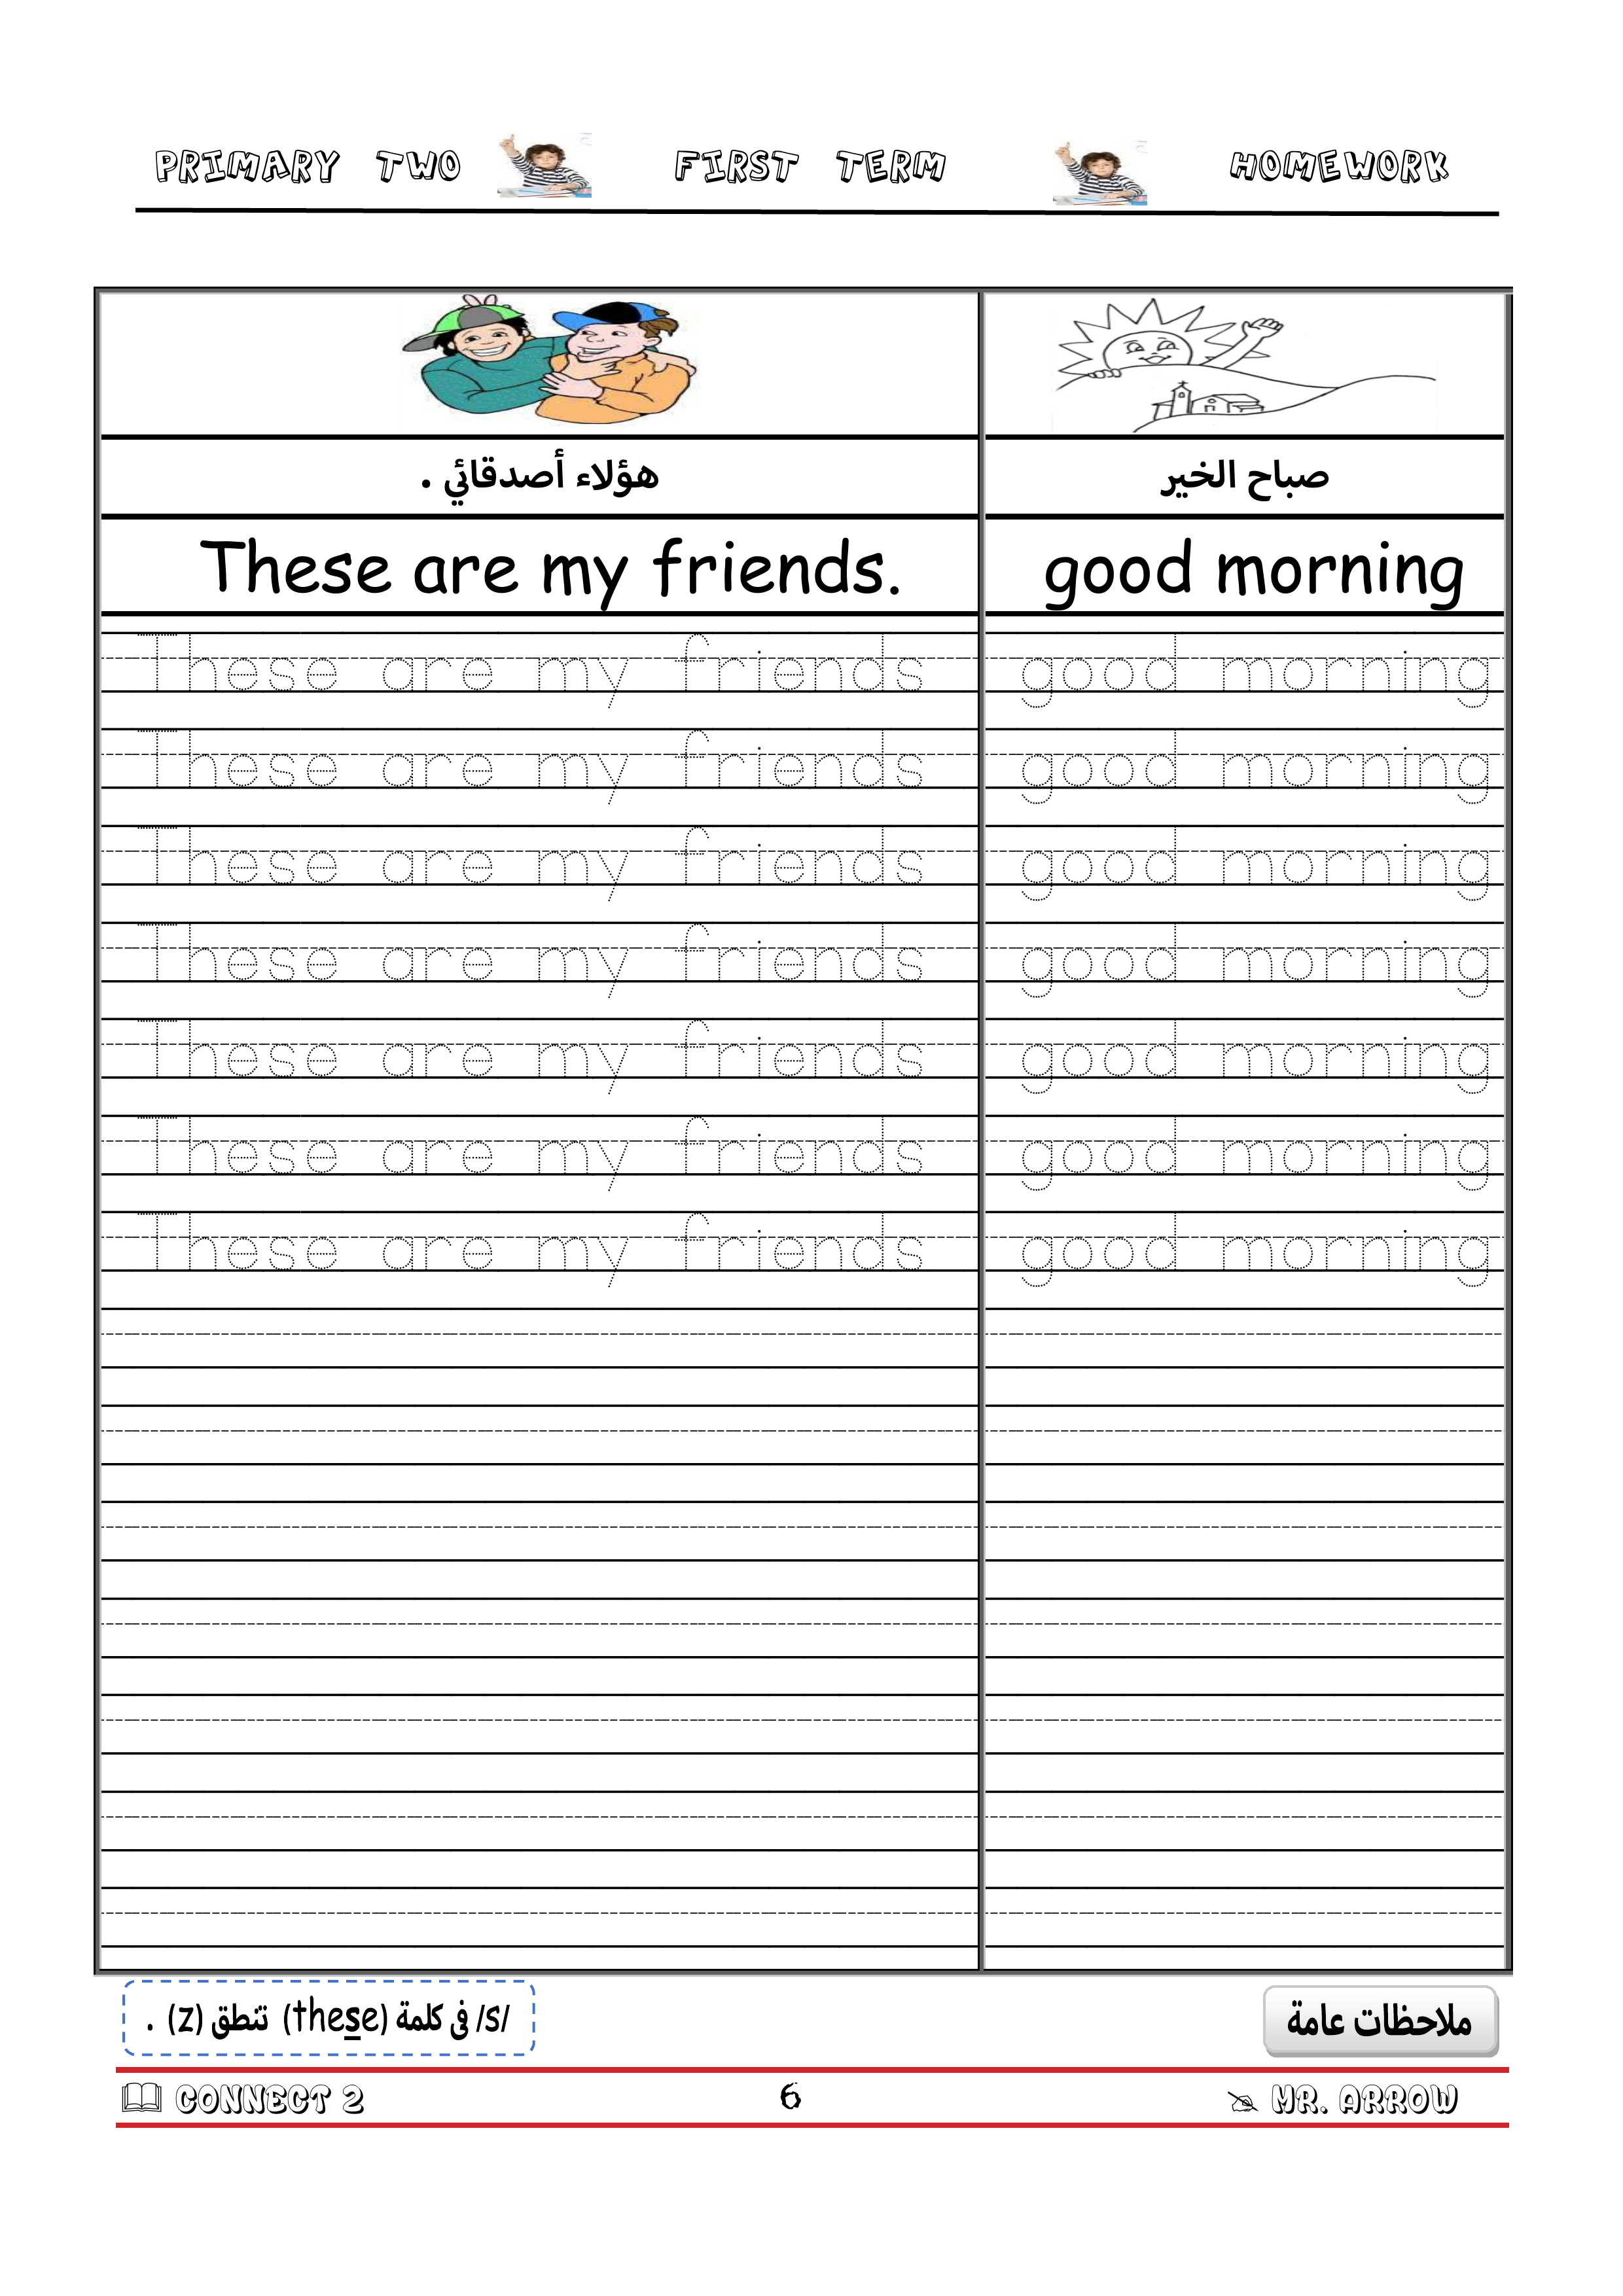 PRIMARY TWO FIRST TERM HOMEWORK
هؤلاء أصدقائي . صباح الخير
These are my friends. good morning
These are my friends good morning
These are my friends good morning
These are my friends good morning
These are my friends good morning
These are my friends good morning
These are my friends good morning
These are my friends good morning
ملاحظات عامة
/s/ فى كلمة (these) تنطق (z) .
CONNECT 2 6 MR. ARROW